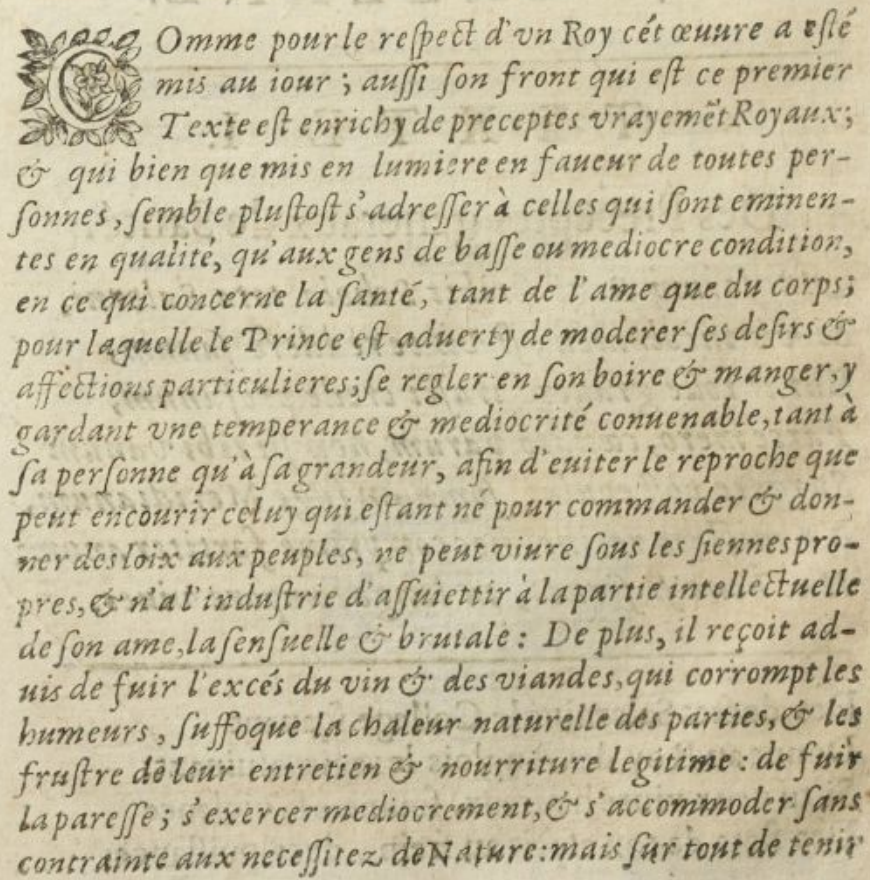 COmme pour le reſpect d'vn Roy cét œuure a eſté
mis au iour ; auſſi ſon front qui eſt ce premier
Texte eſt enrichy de preceptes vrayemẽt Royaux;
& qui bien que mis en lumiere en faueur de toutes per-
ſonnes, ſemble pluſtoſt s'adreſſer à celles qui ſont eminen-
tes en qualité, qu'aux gens de baſſe ou mediocre condition,
en ce qui concerne la ſanté, tant de l'ame que du corps;
pour laquelle le Prince eſt aduerty de moderer ſes deſirs &
affections particulieres; ſe regler en ſon boire & manger, y
gardant vne temperance & mediocrité conuenable, tant à
ſa perſonne qu'à ſa grandeur, afin d'euiter le reproche que
peut encourir celuy qui eſtant né pour commander & don-
ner des loix aux peuples, ne peut viure ſous les ſiennes pro-
pres, & n'a l'induſtrie d'aſſuiettir à la partie intellectuelle
de ſon ame, la ſenſuelle & brutale : De plus, il reçoit ad-
uis de fuir l'excés du vin & des viandes, qui corrompt les
humeurs, ſuffoque la chaleur naturelle des parties, & les
fruſtre de leur entretien & nourriture legitime : de fuir
la pareſſe ; s'exercer mediocrement, & s'accommoder ſans
contrainte aux neceſſitez de Nature: mais ſur tout de tenir